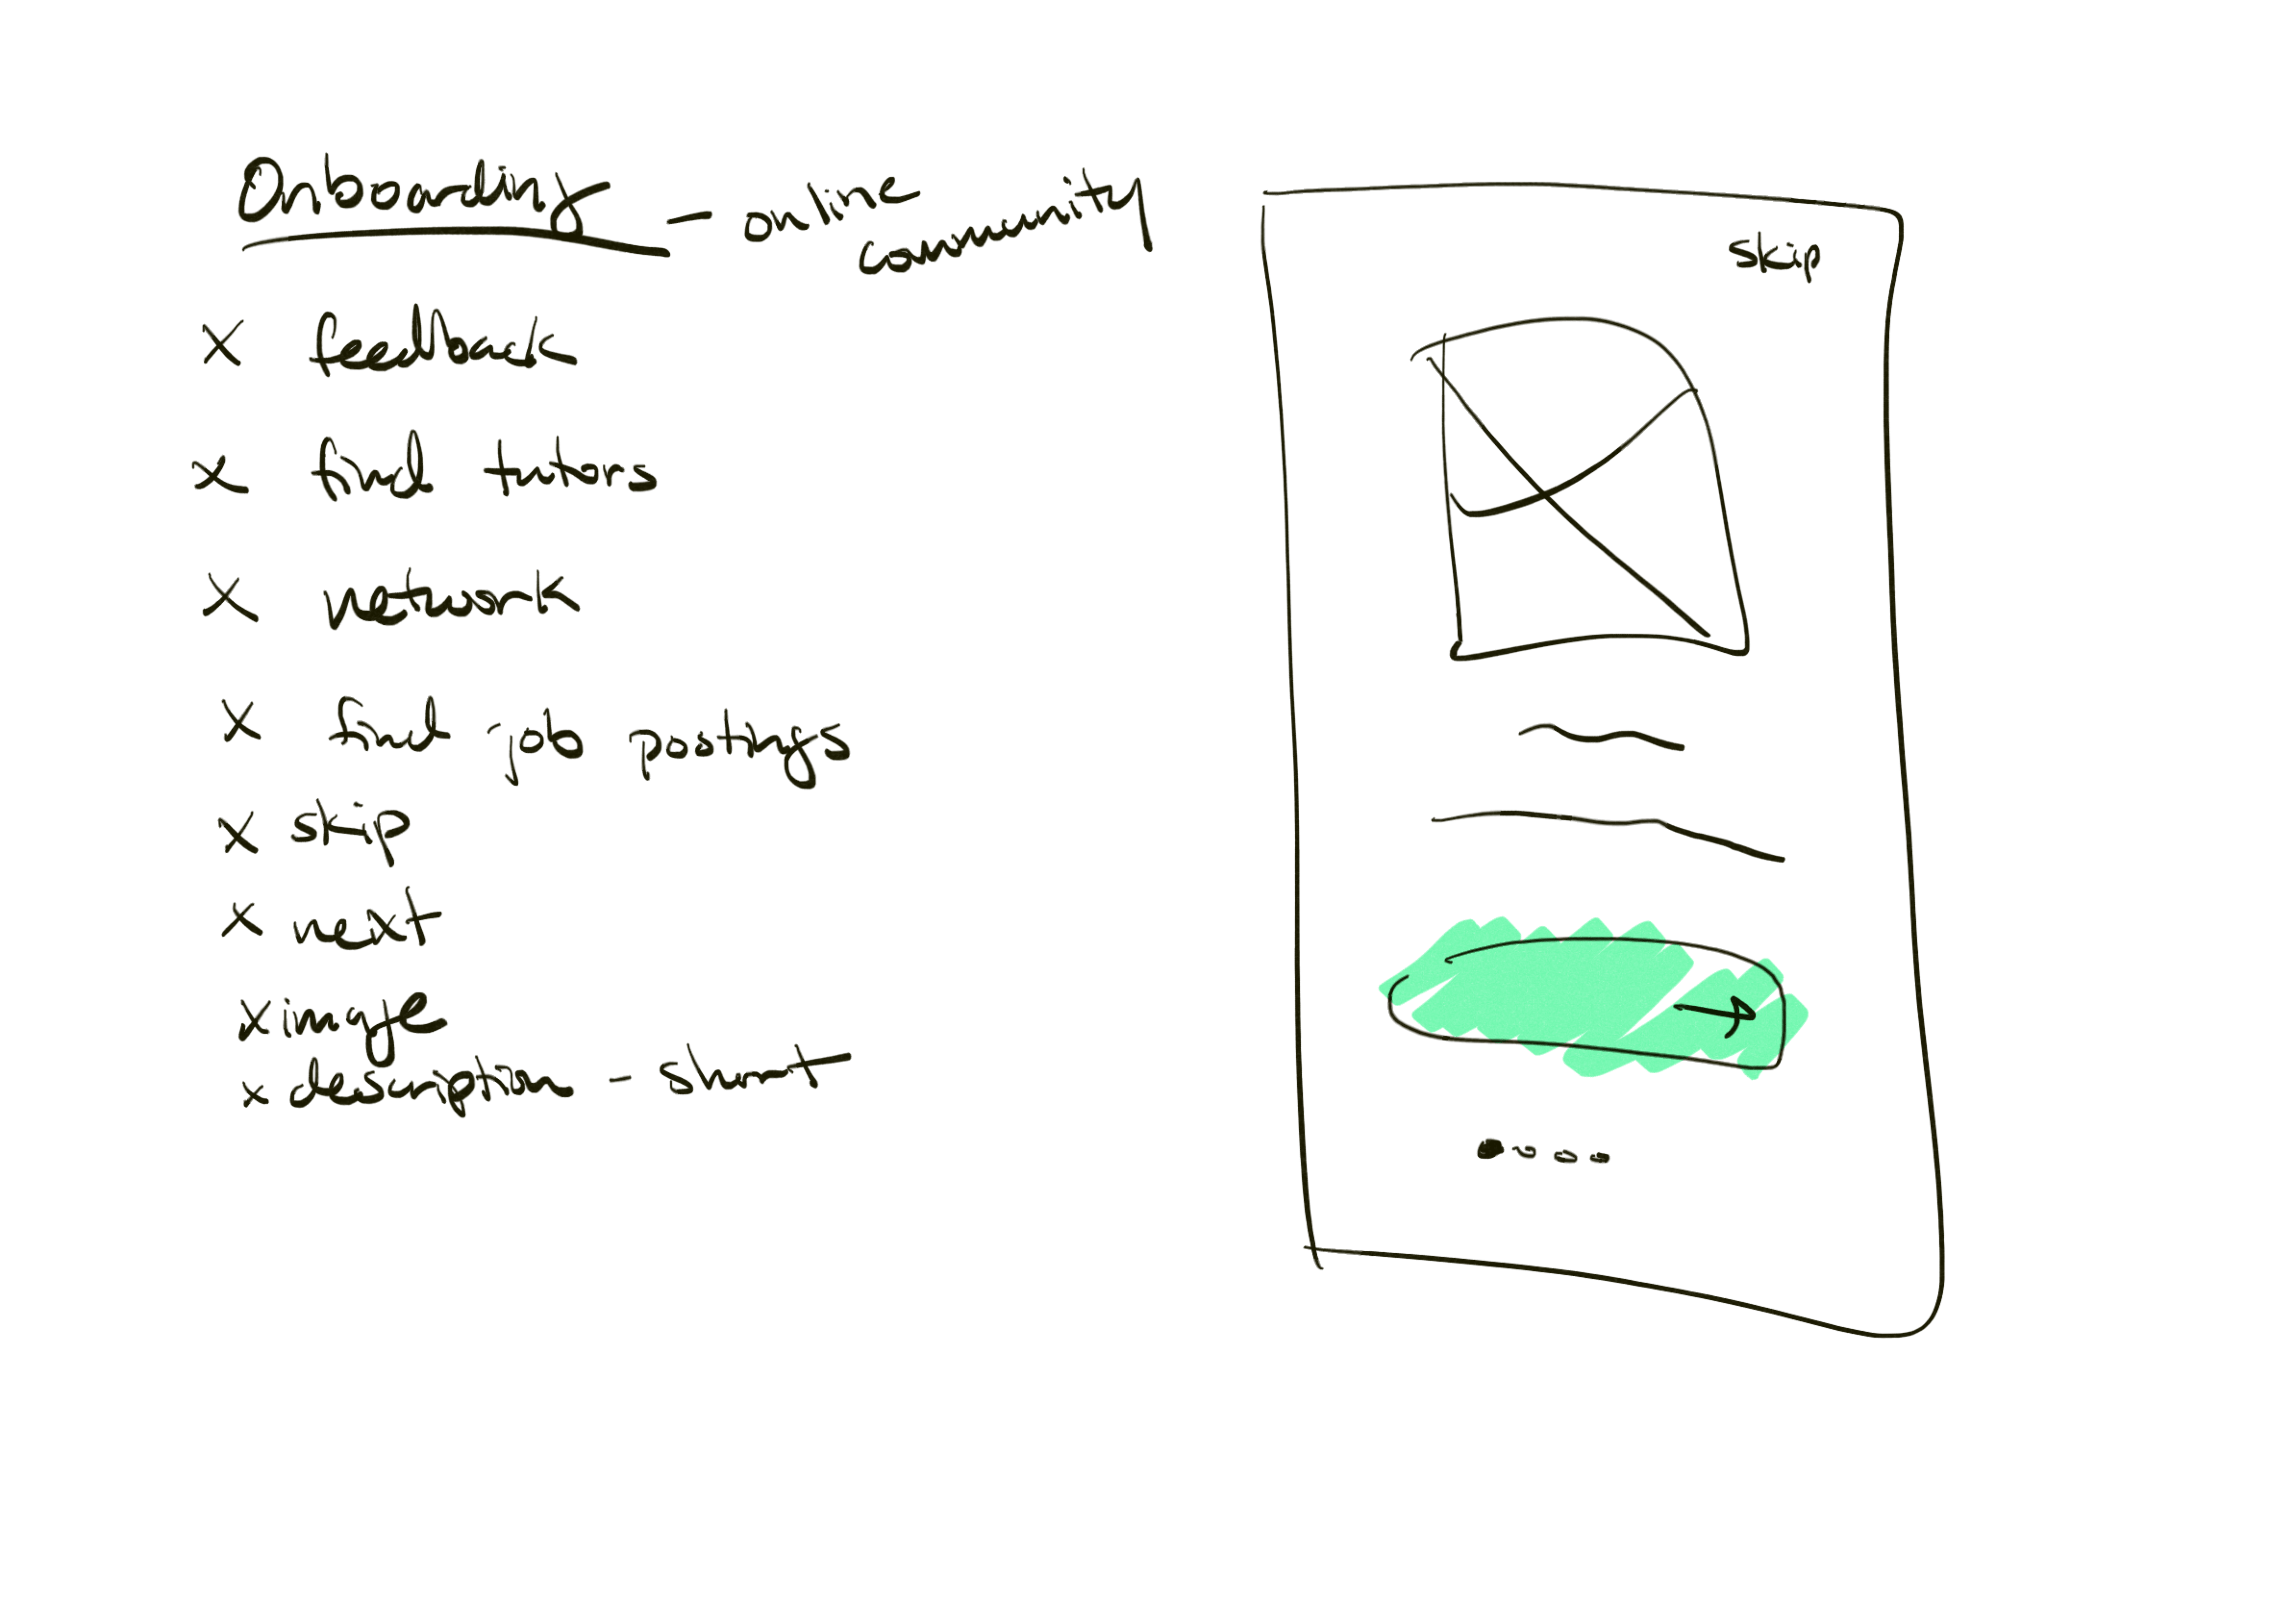 Onboarding - online community
x feedback
x find tutors
x network
x find job postings
x skip
x next
x image
x description - short
skip